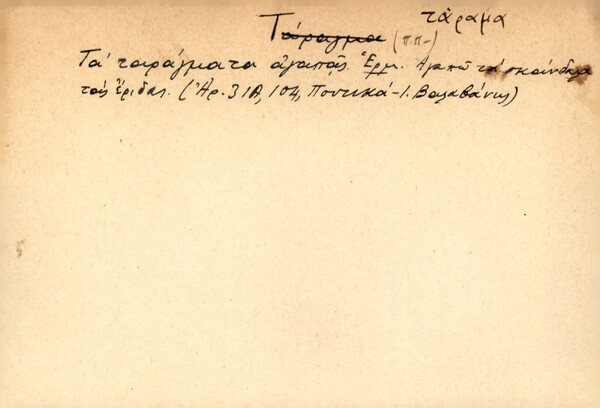 Τάραγμα (π.π-) τάραμα
Τα ταράγματα αγαπάς. Ἑρμ. Αγαπώ τα σκάνδαλα
τας ἔριδας. (Ἀρ. 31Α, 104, Ποντικά - Ι. Βαλαβάνης)